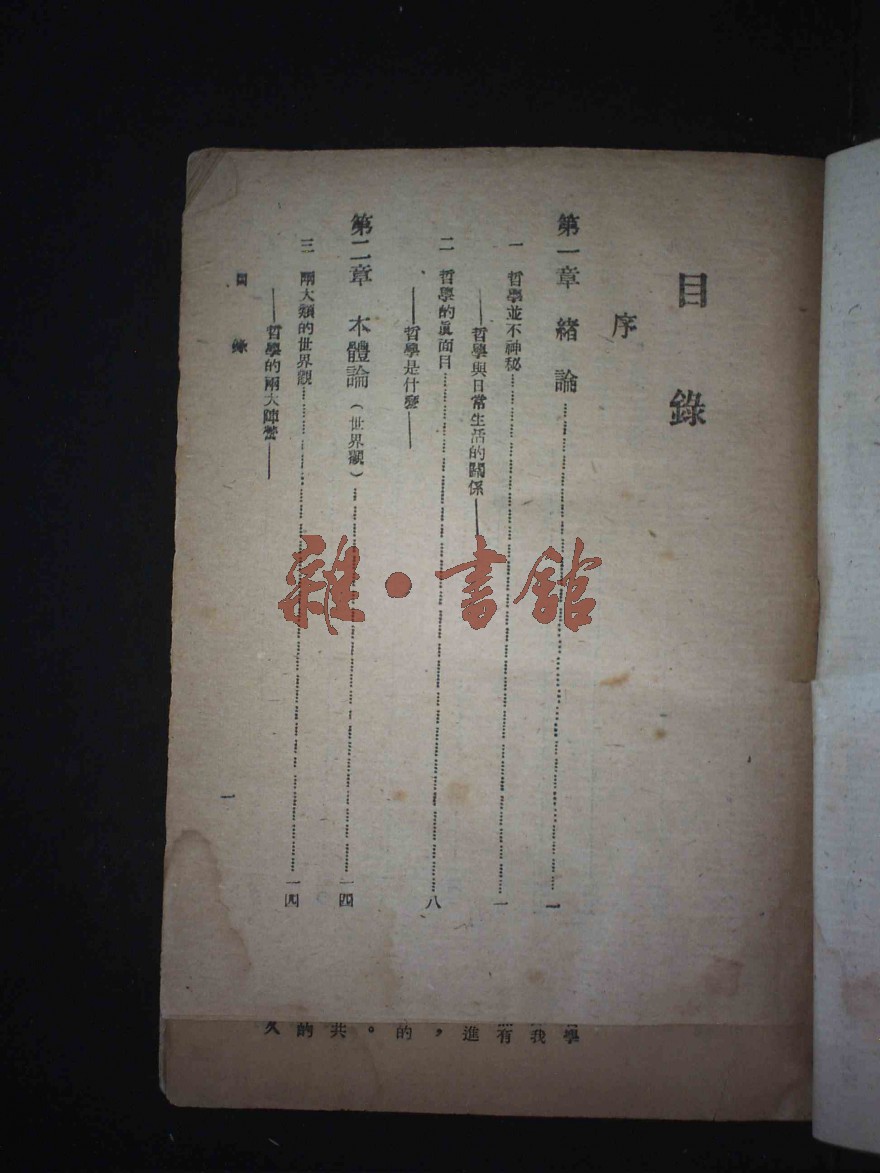 目錄
序
第一章 緒論……一
一 哲學並不神秘……一
——哲學與日常生活的關係——
二 哲學的眞面目……八
——哲學是什麼——
第二章 本體論（世界觀）……一四
三 兩大類的世界觀……一四
——哲學的兩大陣營——
目錄
一
雜·書館
學我有進，的。共的久